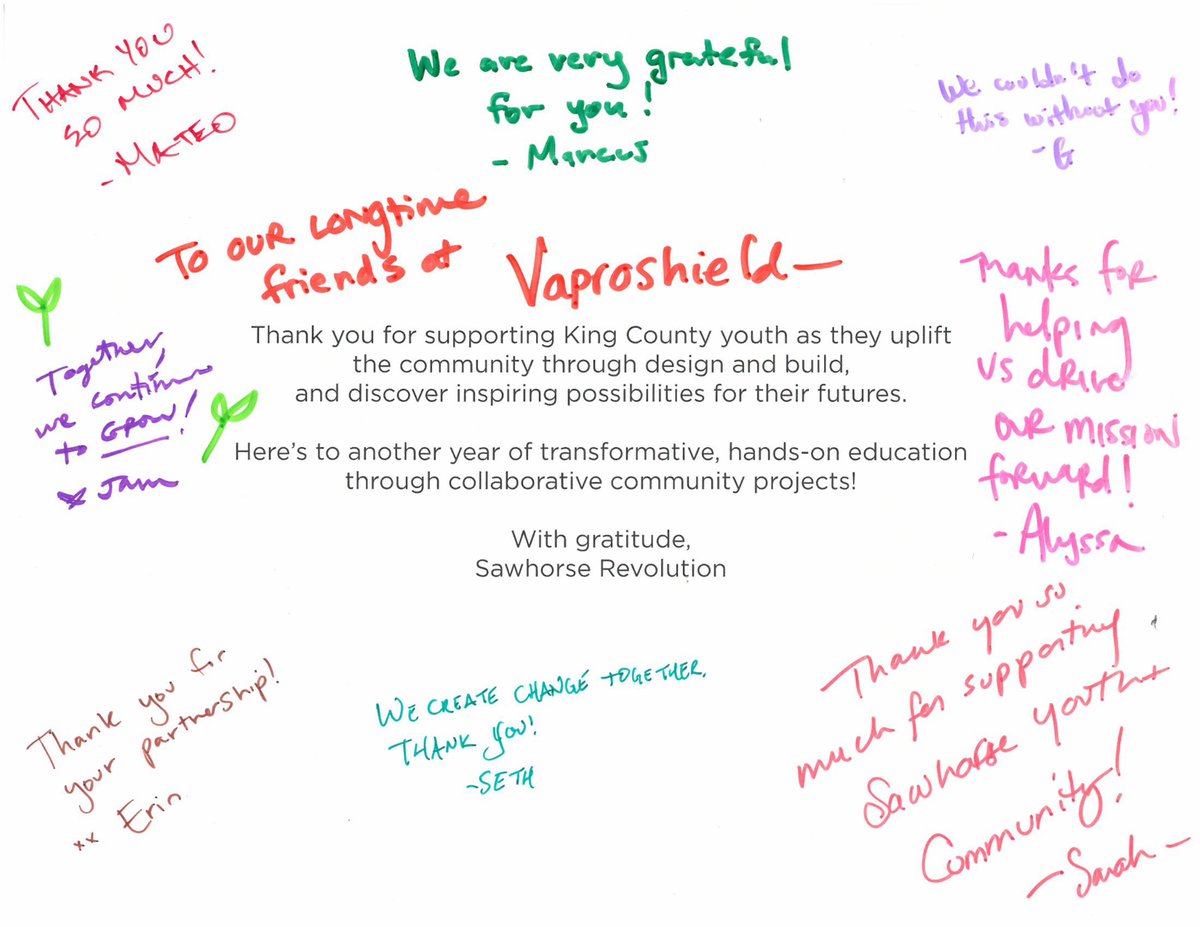 THANK YOU
SO MUCH!
- MATEO
We are very grateful
for you!
- Marcus
We couldn't do
this without you!
- G
To our longtime
friends at Vaproshield—
Thank you for supporting King County youth as they uplift
the community through design and build,
and discover inspiring possibilities for their futures.
Here's to another year of transformative, hands-on education
through collaborative community projects!
With gratitude,
Sawhorse Revolution
Together,
we continue
to GROW!
Jam
Thanks for
helping
us drive
our mission
forward!
- Alyssa
Thank you for
your partnership!
xx Erin
WE CREATE CHANGE TOGETHER.
THANK YOU!
-SETH
Thank you so
much for supporting
Sawhorse youth +
Community!
- Sarah -